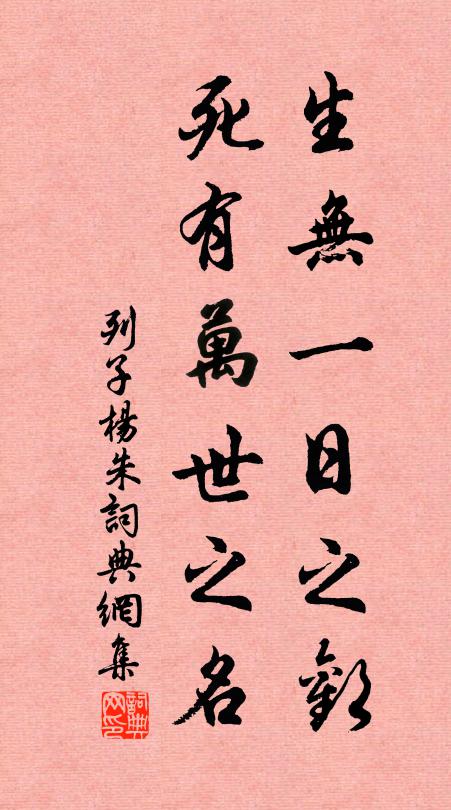 生無一日之歡
死有萬世之名
列子楊朱詞典網集
詞典网印